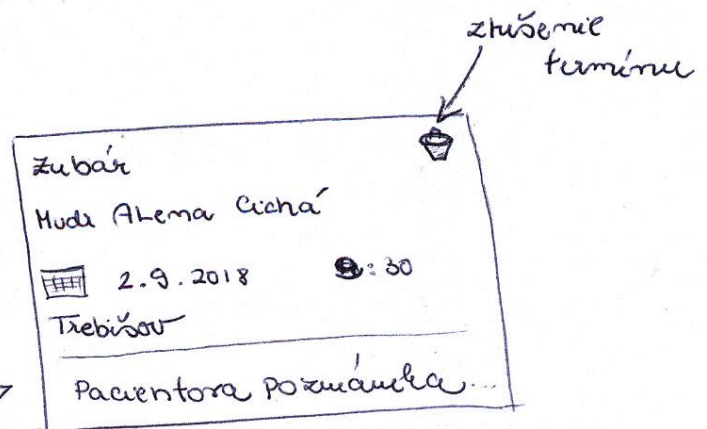 zrušenie
termínu
Zubár
Mudr Alena Cichá
2.9.2018 :30
Trebišov
Pacientova poznámka...